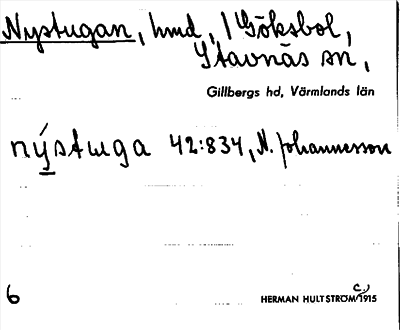 Nystugan, hmd, i Göksbol,
Stavnäs sn,
Gillbergs hd, Värmlands län
nýstuga 42:834, N. Johannesson
6
HERMAN HULTSTRÖM c:) 1915